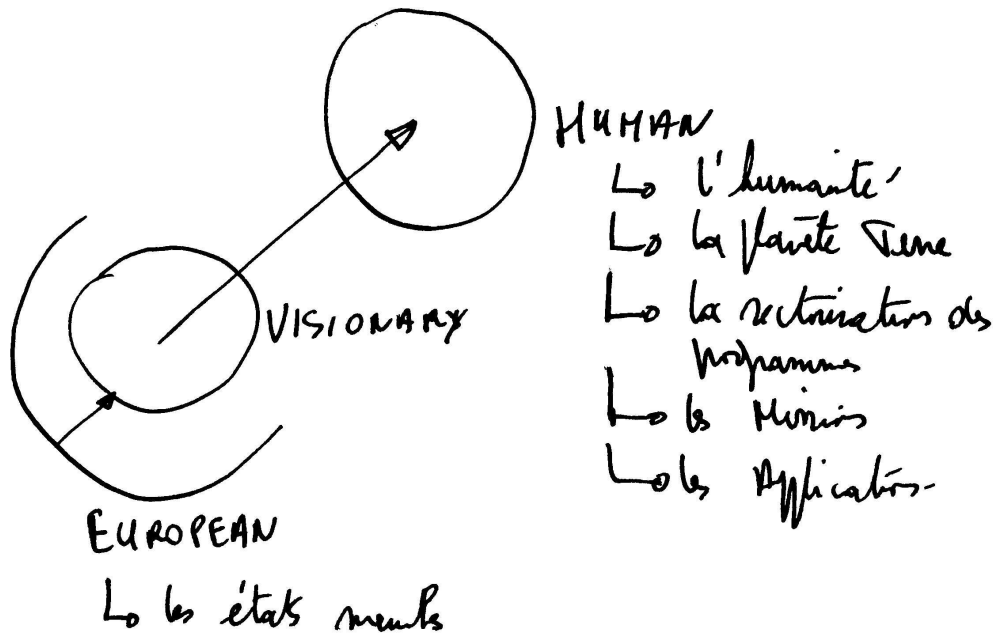 HUMAN
l'humanité
la planète Terre
la sectorisation des
programmes
les Missions
les Applications
VISIONARY
EUROPEAN
les états membres